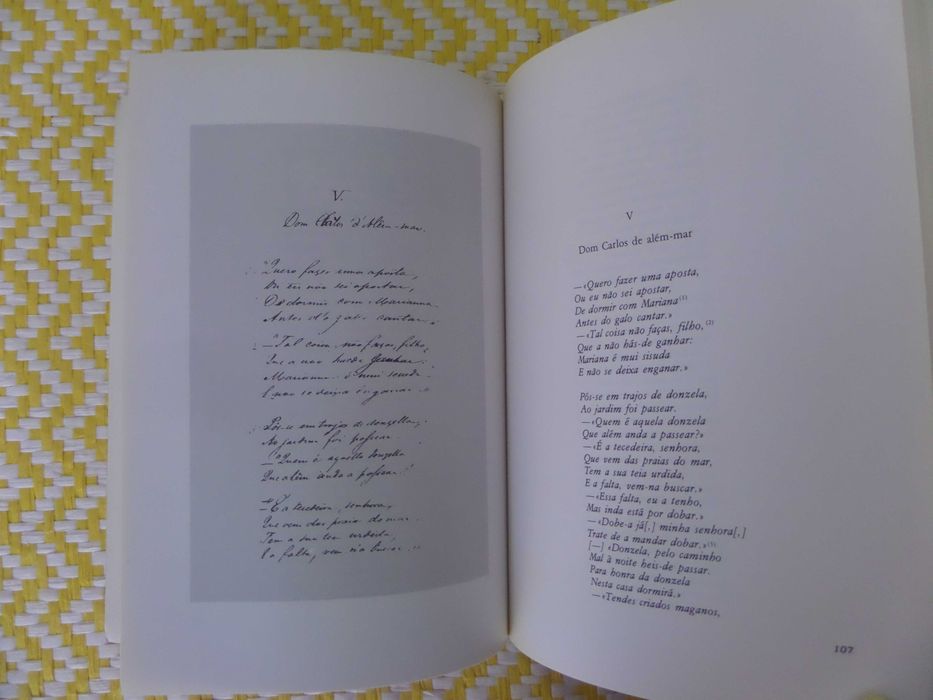 V.
Dom Carlos d'Além-mar.
Quero fazer uma aposta,
Ou eu não sei apostar,
De dormir com Marianna
Antes d'o galo cantar.
— Tal coisa, não faças, filho,
Que a não has de ganhar:
Marianna é mui sesuda
E não se deixa enganar.
Pôs-se em trajos de donzella,
Ao jardim foi passear.
— Quem é aquella donzella
Que além anda a passear?
— É a tecedeira, senhora,
Que vem das praias do mar.
Tem a sua tea urdida,
E a falta, vem n'a buscar.
V
Dom Carlos de além-mar
—«Quero fazer uma aposta,
Ou eu não sei apostar,
De dormir com Mariana(1)
Antes do galo cantar.»
—«Tal coisa não faças, filho,(2)
Que a não hás-de ganhar:
Mariana é mui sisuda
E não se deixa enganar.»
Pôs-se em trajos de donzela,
Ao jardim foi passear.
—«Quem é aquela donzela
Que além anda a passear?»
—«É a tecedeira, senhora,
Que vem das praias do mar,
Tem a sua teia urdida,
E a falta, vem-na buscar.»
—«Essa falta, eu a tenho,
Mas inda está por dobar.»
—«Dobe-a já[,] minha senhora[,]
Trate de a mandar dobar.»(3)
[—] «Donzela, pelo caminho
Mal à noite heis-de passar.
Para honra da donzela
Nesta casa dormirá.»
—«Tendes criados maganos,
107